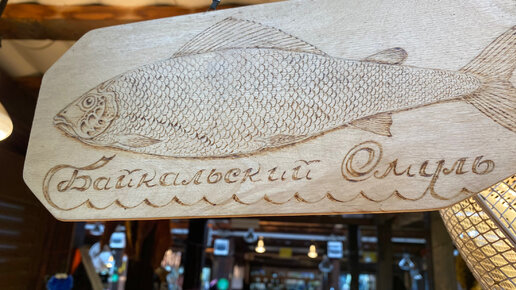 Байкальский Омуль